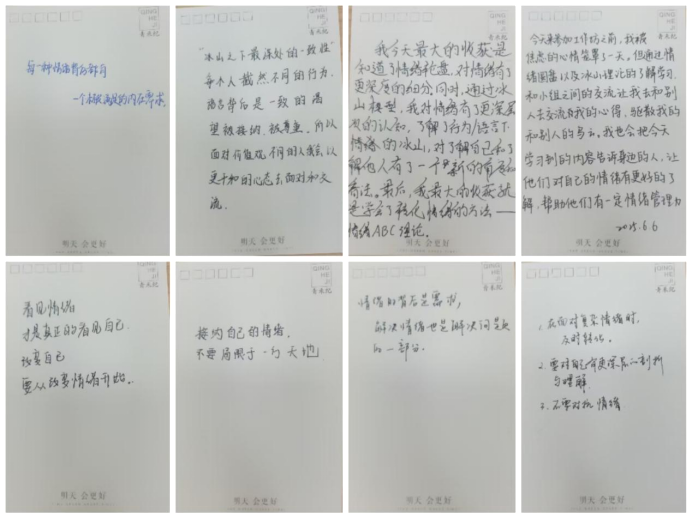 每一种情绪背后都有
一个未被满足的内在需求
明天 会更好
"冰山之下最深处的一致性"
每个人截然不同的行为、
语言背后是一致的渴
望被接纳、被尊重。所以
面对 不同的人 以
更平和的心态去面对和交
流。
明天 会更好
我今天最大的收获是
知道了情绪轮盘,对情绪有了
更深层的区分,同时,通过冰
山模型,我对情绪有了更深层
次的认知,了解了行为/语言下
情绪的冰山,对了解自己和了
解他人有了一个新的
看法。最后,我最大的收获就
是学会了转化情绪的方法——
情绪ABC理论。
今天来参加工作坊之前,我被
焦虑的心情笼罩了一天。但通过情
绪圆盘以及冰山理论的了解学习,
和小组之间的交流让我去和别
人去交流自我的心得,
和别人的 。我也会把今天
学习到的内容告诉身边的人,让
他们对自己的情绪有更好的了
解,帮助他们有一定情绪管理力
2025.6.6
看见情绪
才是真正的看见自己
改变自己
要从改变情绪开始。
明天 会更好
接纳自己的情绪,
不要局限于一方天地
明天 会更好
情绪的背后是需求,
解决情绪也是解决问题
的一部分。
明天 会更好
1.在面对负面情绪时,
及时转化。
2.要对自己有更深层的剖析
与理解
3.不要对抗情绪
明天 会更好